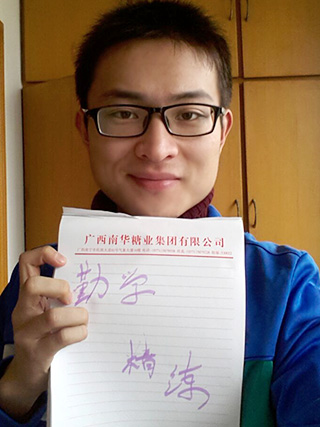 广西南华糖业集团有限公司
勤学
精练